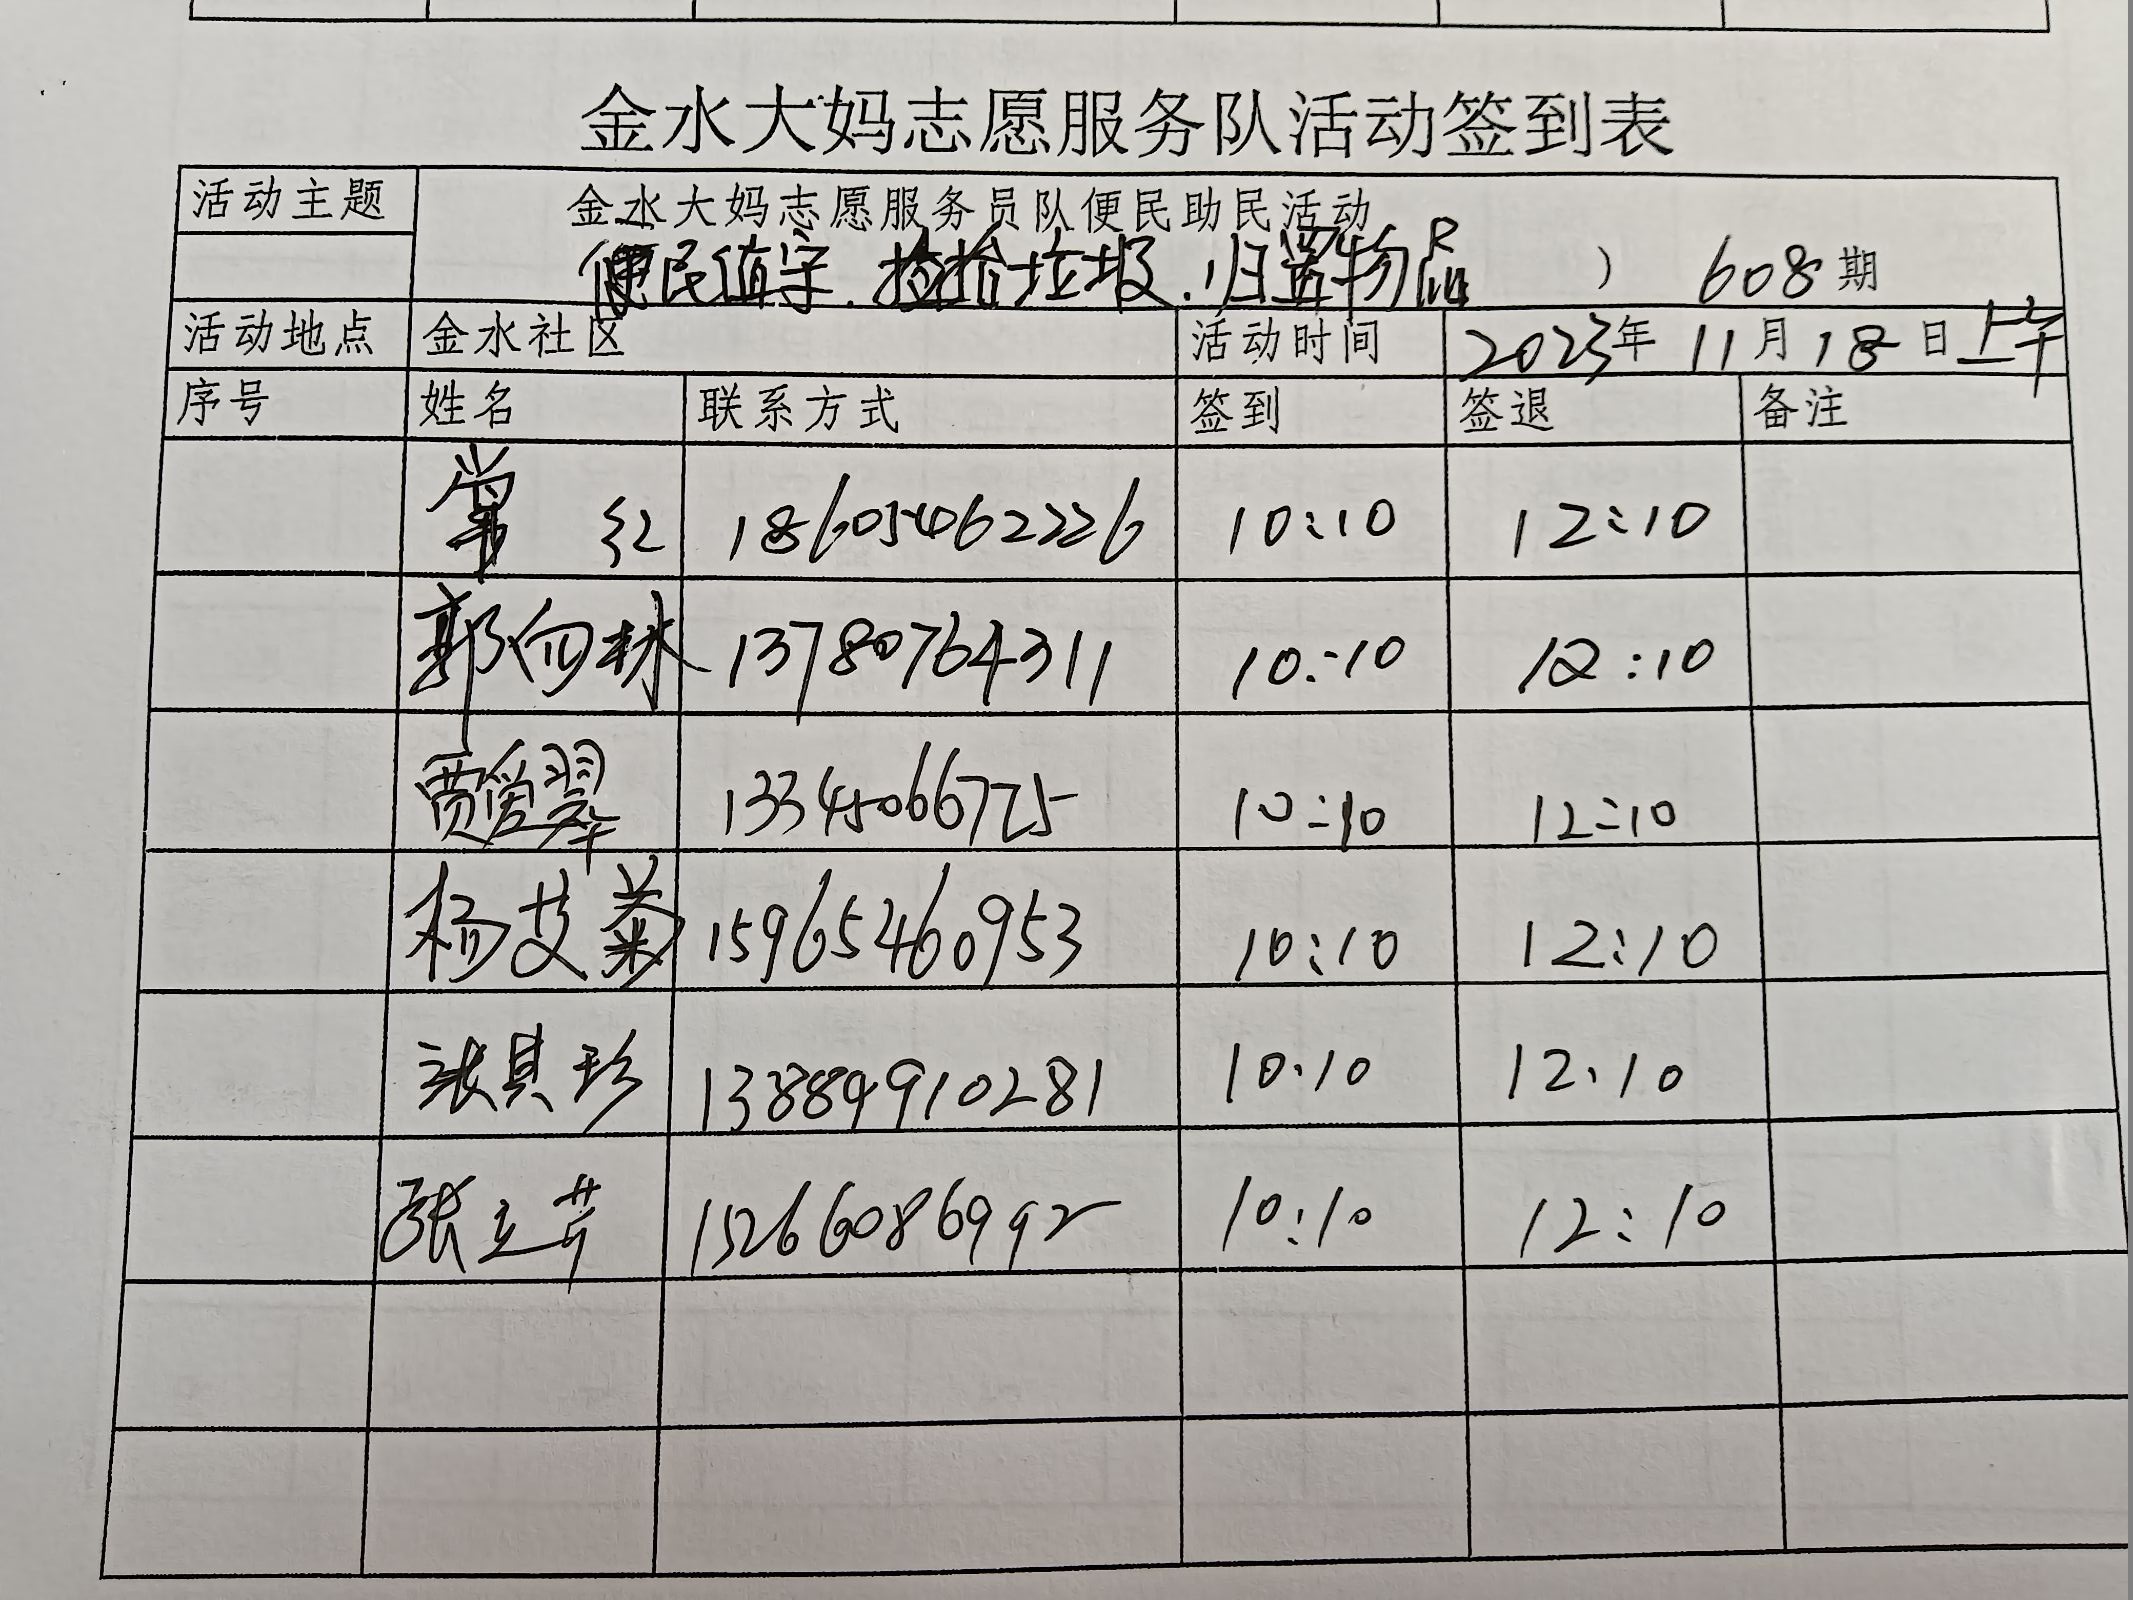 金水大妈志愿服务队活动签到表
活动主题 金水大妈志愿服务员队便民助民活动
便民值守.捡拾垃圾.归置物品 ） 608期
活动地点 金水社区 活动时间 2023年11月18日上午
序号 姓名 联系方式 签到 签退 备注
常红 18605462226 10:10 12:10
郭向林 13780764311 10:10 12:10
贾爱翠 13345066775 10:10 12:10
杨芝菊 15965460953 10:10 12:10
张其珍 13884910281 10.10 12.10
张立芹 15266086992 10:10 12:10